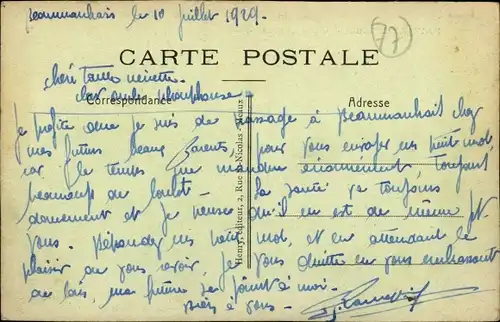 Beaumarchais le 10 juillet 1929.
77
CARTE POSTALE
chère tante
cher oncle
Correspondance
Adresse
Henry, Editeur, 2, Rue St-Nicolas - Meaux
Je profite que je suis de passage à Beaumarchais chez
mes futurs beaux Parents, pour vous envoyer un petit mot,
car le temps me manque énormément Toujours
beaucoup de boulot. La santé va toujours
doucement et je pense qu'il en est de même pr
vous. Répondez un petit mot, et en attendant le
plaisir de vous revoir, je vous quitte en vous embrassant
de loin, ma future se joint à moi.
à vous.